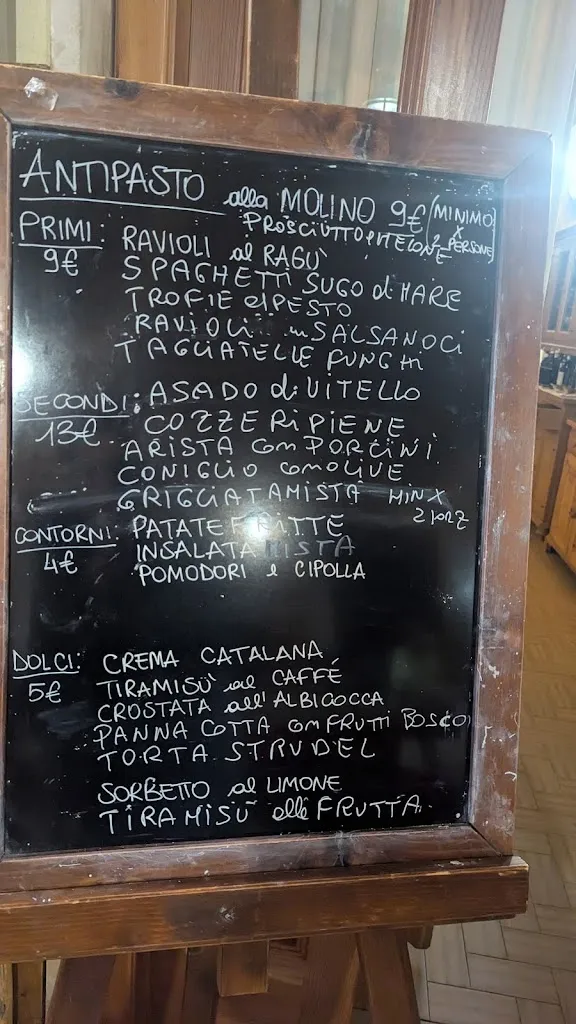 ANTIPASTO alla MOLINO 9€ (MINIMO
PROSCIUTTO e MELONE X 2 PERSONE)
PRIMI: RAVIOLI al RAGÙ
9€ SPAGHETTI SUGO di MARE
TROFIE al PESTO
RAVIOLI in SALSA NOCI
TAGLIATELLE FUNGHI
SECONDI: ASADO di VITELLO
13€ COZZE RIPIENE
ARISTA con PORCINI
CONIGLIO con OLIVE
GRIGLIATA MISTA MIN X
2 PORZ
CONTORNI: PATATE FRITTE
4€ INSALATA MISTA
POMODORI e CIPOLLA
DOLCI: CREMA CATALANA
5€ TIRAMISÙ al CAFFÉ
CROSTATA all'ALBICOCCA
PANNA COTTA con FRUTTI BOSCO
TORTA STRUDEL
SORBETTO al LIMONE
TIRAMISÙ alla FRUTTA